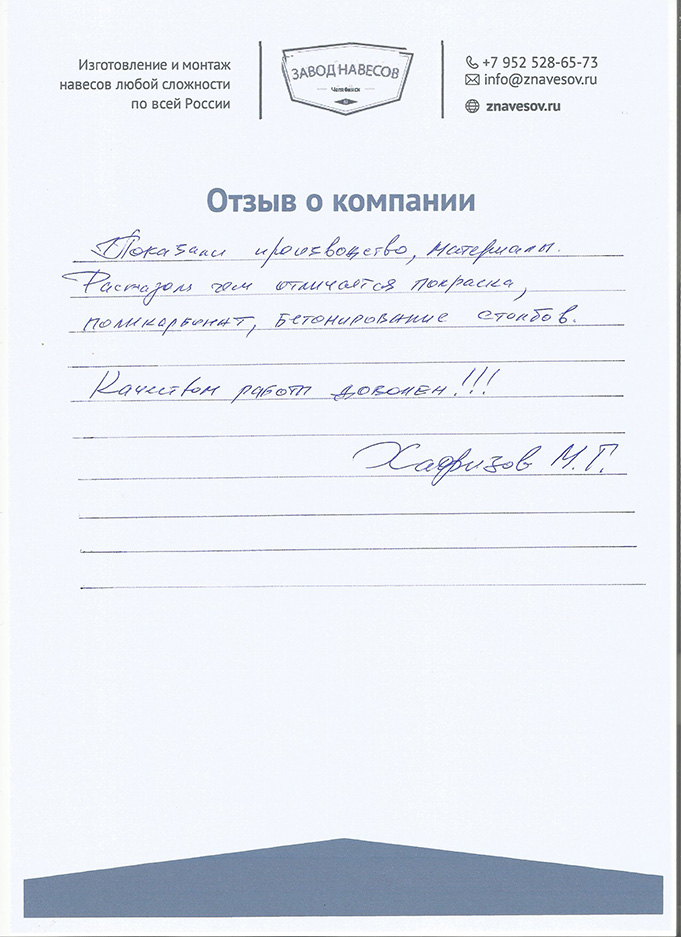 Изготовление и монтаж
навесов любой сложности
по всей России
ЗАВОД НАВЕСОВ
Челябинск
+7 952 528-65-73
info@znavesov.ru
znavesov.ru
Отзыв о компании
Показали производство, материалы.
Рассказали чем отличается покраска,
поликарбонат, бетонирование столбов.
Качеством работ доволен!!!
Хафизов М.Г.